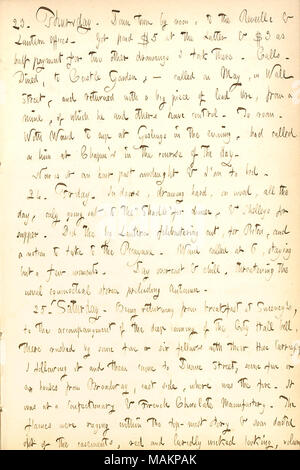 23. Thursday. Down town by noon, to the Reveille &
Lantern offices. Got paid $5 at the latter & $3 as
half payment for two other drawings I took there. Calls.
Dined, to Castle Garden, called on May, in Wall
Street, and returned with a big piece of lead ore, from a
mine, of which he and others have control. To room.
With Waud to age at Goslings in the evening, had called
on him at Chapin's in the course of the day.
Now is it an hour past midnight & I'm to bed.
24. Friday. In doors, drawing hard, on wood, all the
day, only going out to the Shades for dinner, & Sholleys for
supper. Did the Lantern filibustering cut for Peter, and
a notion to take to the Picayune. Waud called at 6, staying
but a few moments. Day overcast & chill, threatening the
usual equinoctial storm preluding Autumn.
25. Saturday. Being returning from breakfast at Sweeney's,
to the accompaniment of the deep booming of the City Hall bell,
there rushed by some five or six fellows with their Hose carriage,
I following it and them came to Duane Street, some five or
six houses from Broadway, east side, where was the fire. It
was at a Confectionary & French Chocolate Manufactory. The
flames were raging within the top-most story, & soon darted
out of the casements, red and luridly wicked looking, volum
a
alamy
Image ID: MAKPAK
www.alamy.com